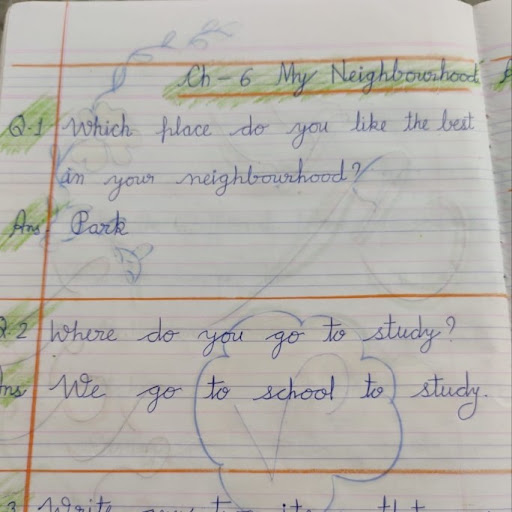 Ch - 6 My Neighbourhood
Q.1 Which place do you like the best
in your neighbourhood?
Ans. Park
Q.2 Where do you go to study?
Ans We go to school to study.
3 Write any two